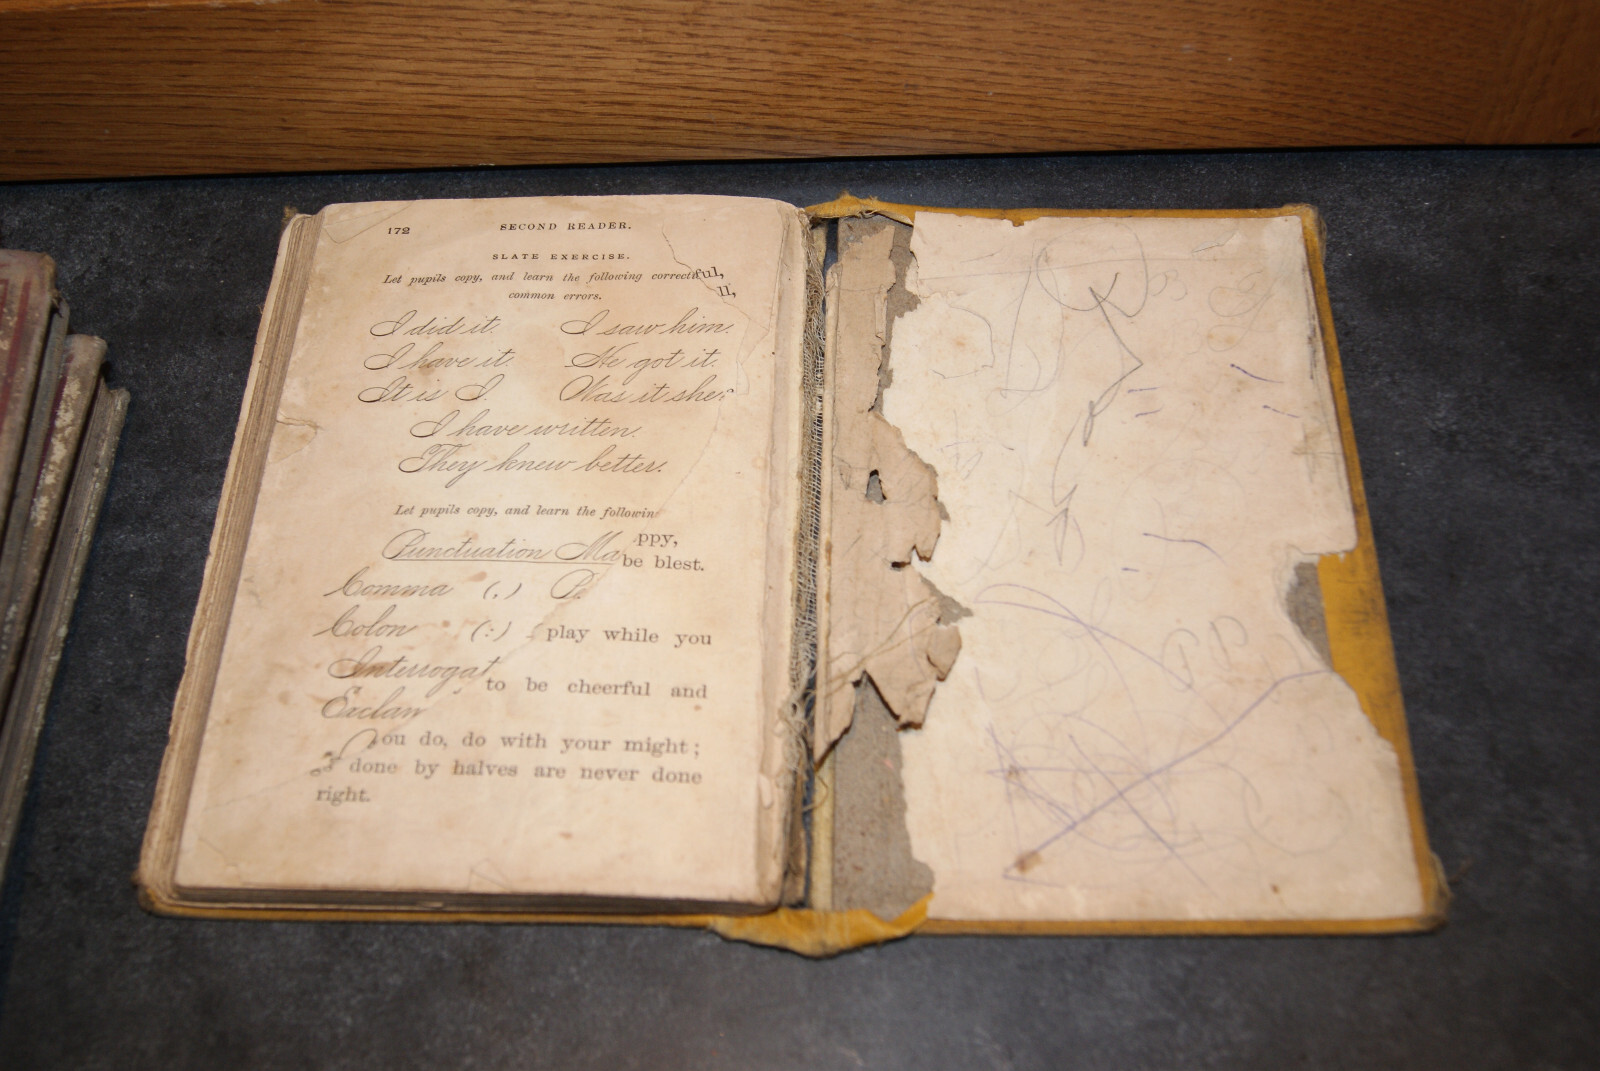 172 SECOND READER.
SLATE EXERCISE.
Let pupils copy, and learn the following correct ful,
common errors. ll,
I did it. I saw him.
I have it. He got it.
It is I. Was it she?
I have written.
They knew better.
Let pupils copy, and learn the followin
Punctuation Ma ppy,
be blest.
Comma (,) P
Colon (:) play while you
Interrogat to be cheerful and
Exclam
ou do, do with your might;
done by halves are never done
right.